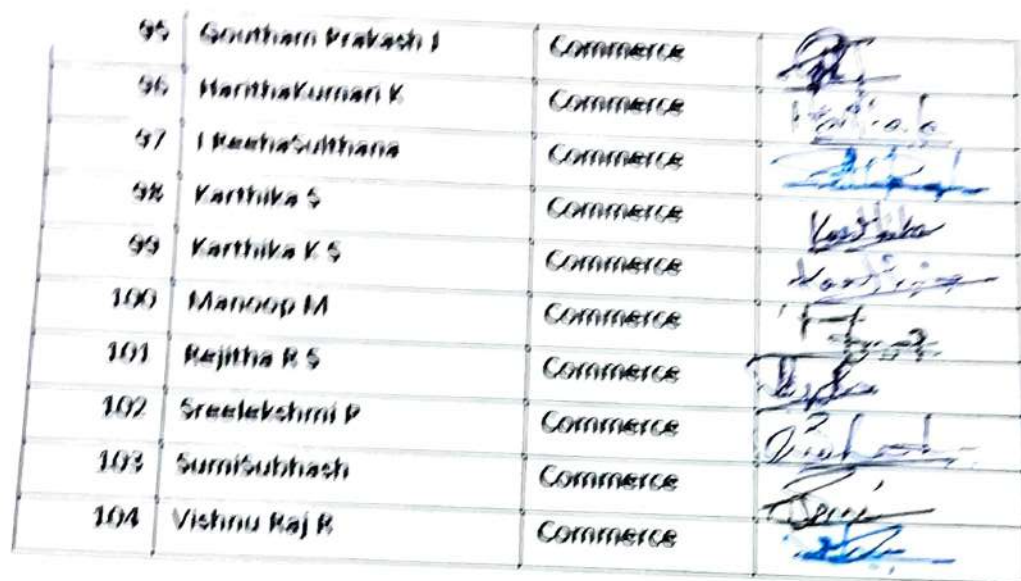 95 Goutham Prakash J Commerce
96 HarithaKumari K Commerce
97 I ReehaSulthana Commerce
98 Karthika S Commerce Karthika
99 Karthika K S Commerce
100 Manoop M Commerce
101 Rejitha R S Commerce
102 Sreelekshmi P Commerce
103 SumiSubhash Commerce
104 Vishnu Raj R Commerce